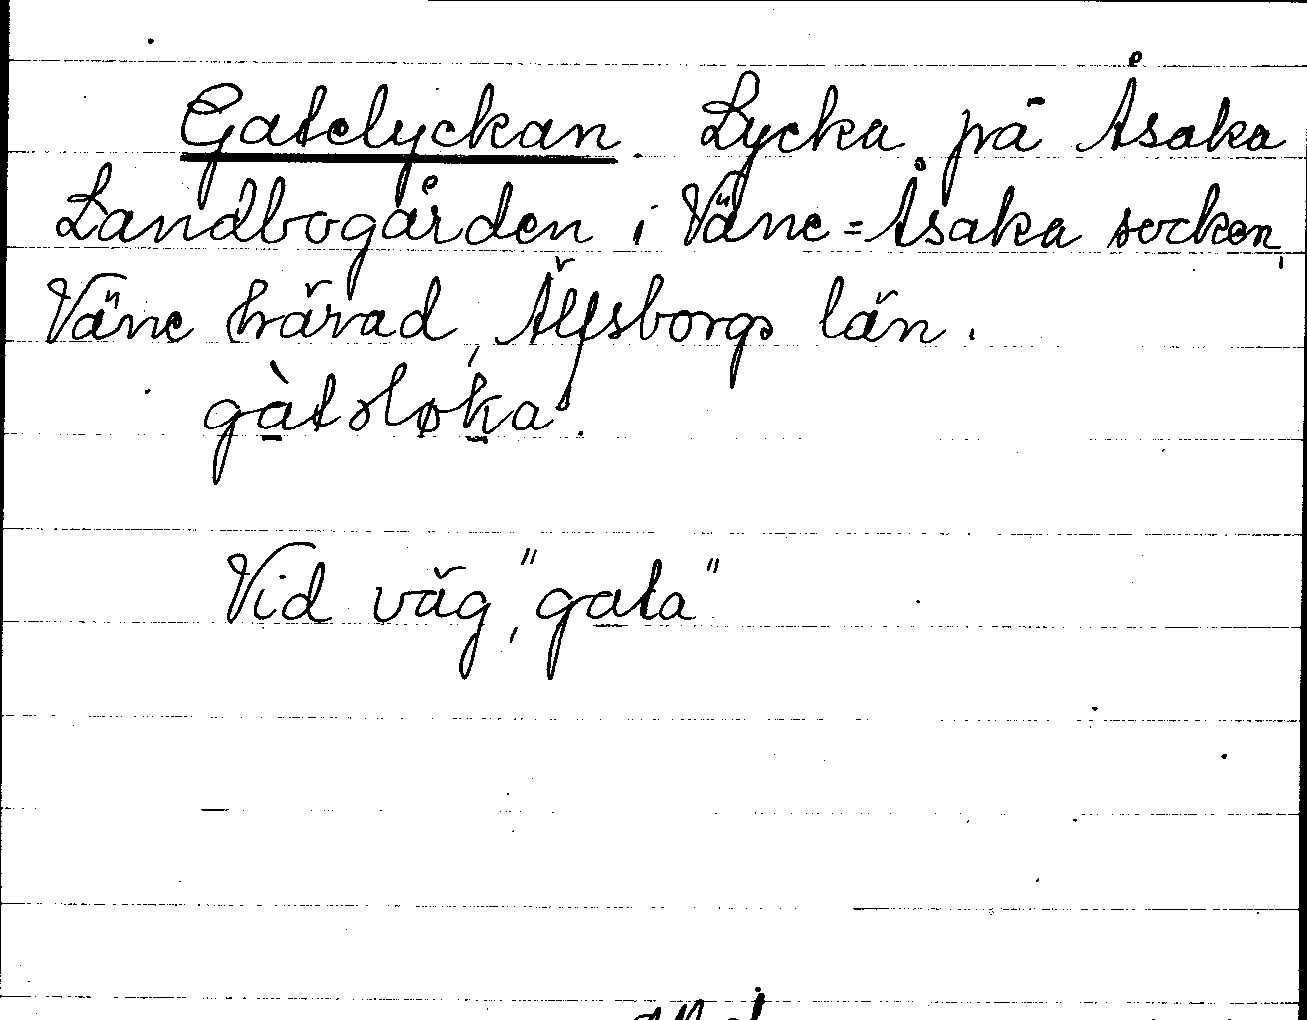 Gatelyckan. Lycka på Åsaka
Landbogården i Väne=Åsaka socken,
Väne härad, Älfsborgs län.
gàtəløka.
Vid väg, "gata"